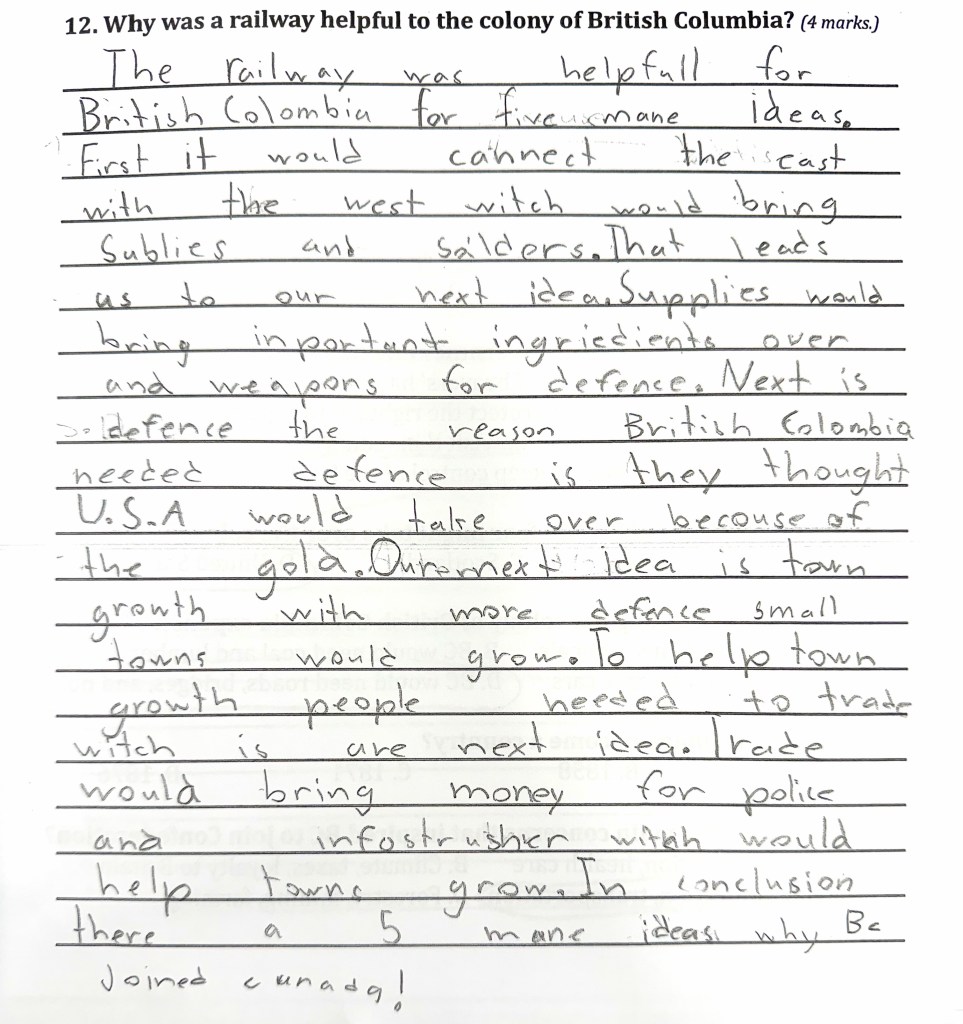 12. Why was a railway helpful to the colony of British Columbia? (4 marks.)
The railway was helpfull for
British Colombia for five mane ideas.
First it would cannect the east
with the west witch would bring
Sublies and salders. That leads
us to our next idea. Supplies would
bring inportant ingriedients over
and weapons for defence. Next is
defence the reason British Colombia
needed defence is they thought
U.S.A would take over becouse of
the gold. Our next idea is town
growth with more defence small
towns would grow. To help town
growth people needed to trade
witch is are next idea. Trade
would bring money for police
and infostrusher witch would
help Towns grow. In conclusion
there a 5 mane ideas why Bc
Joined canada!